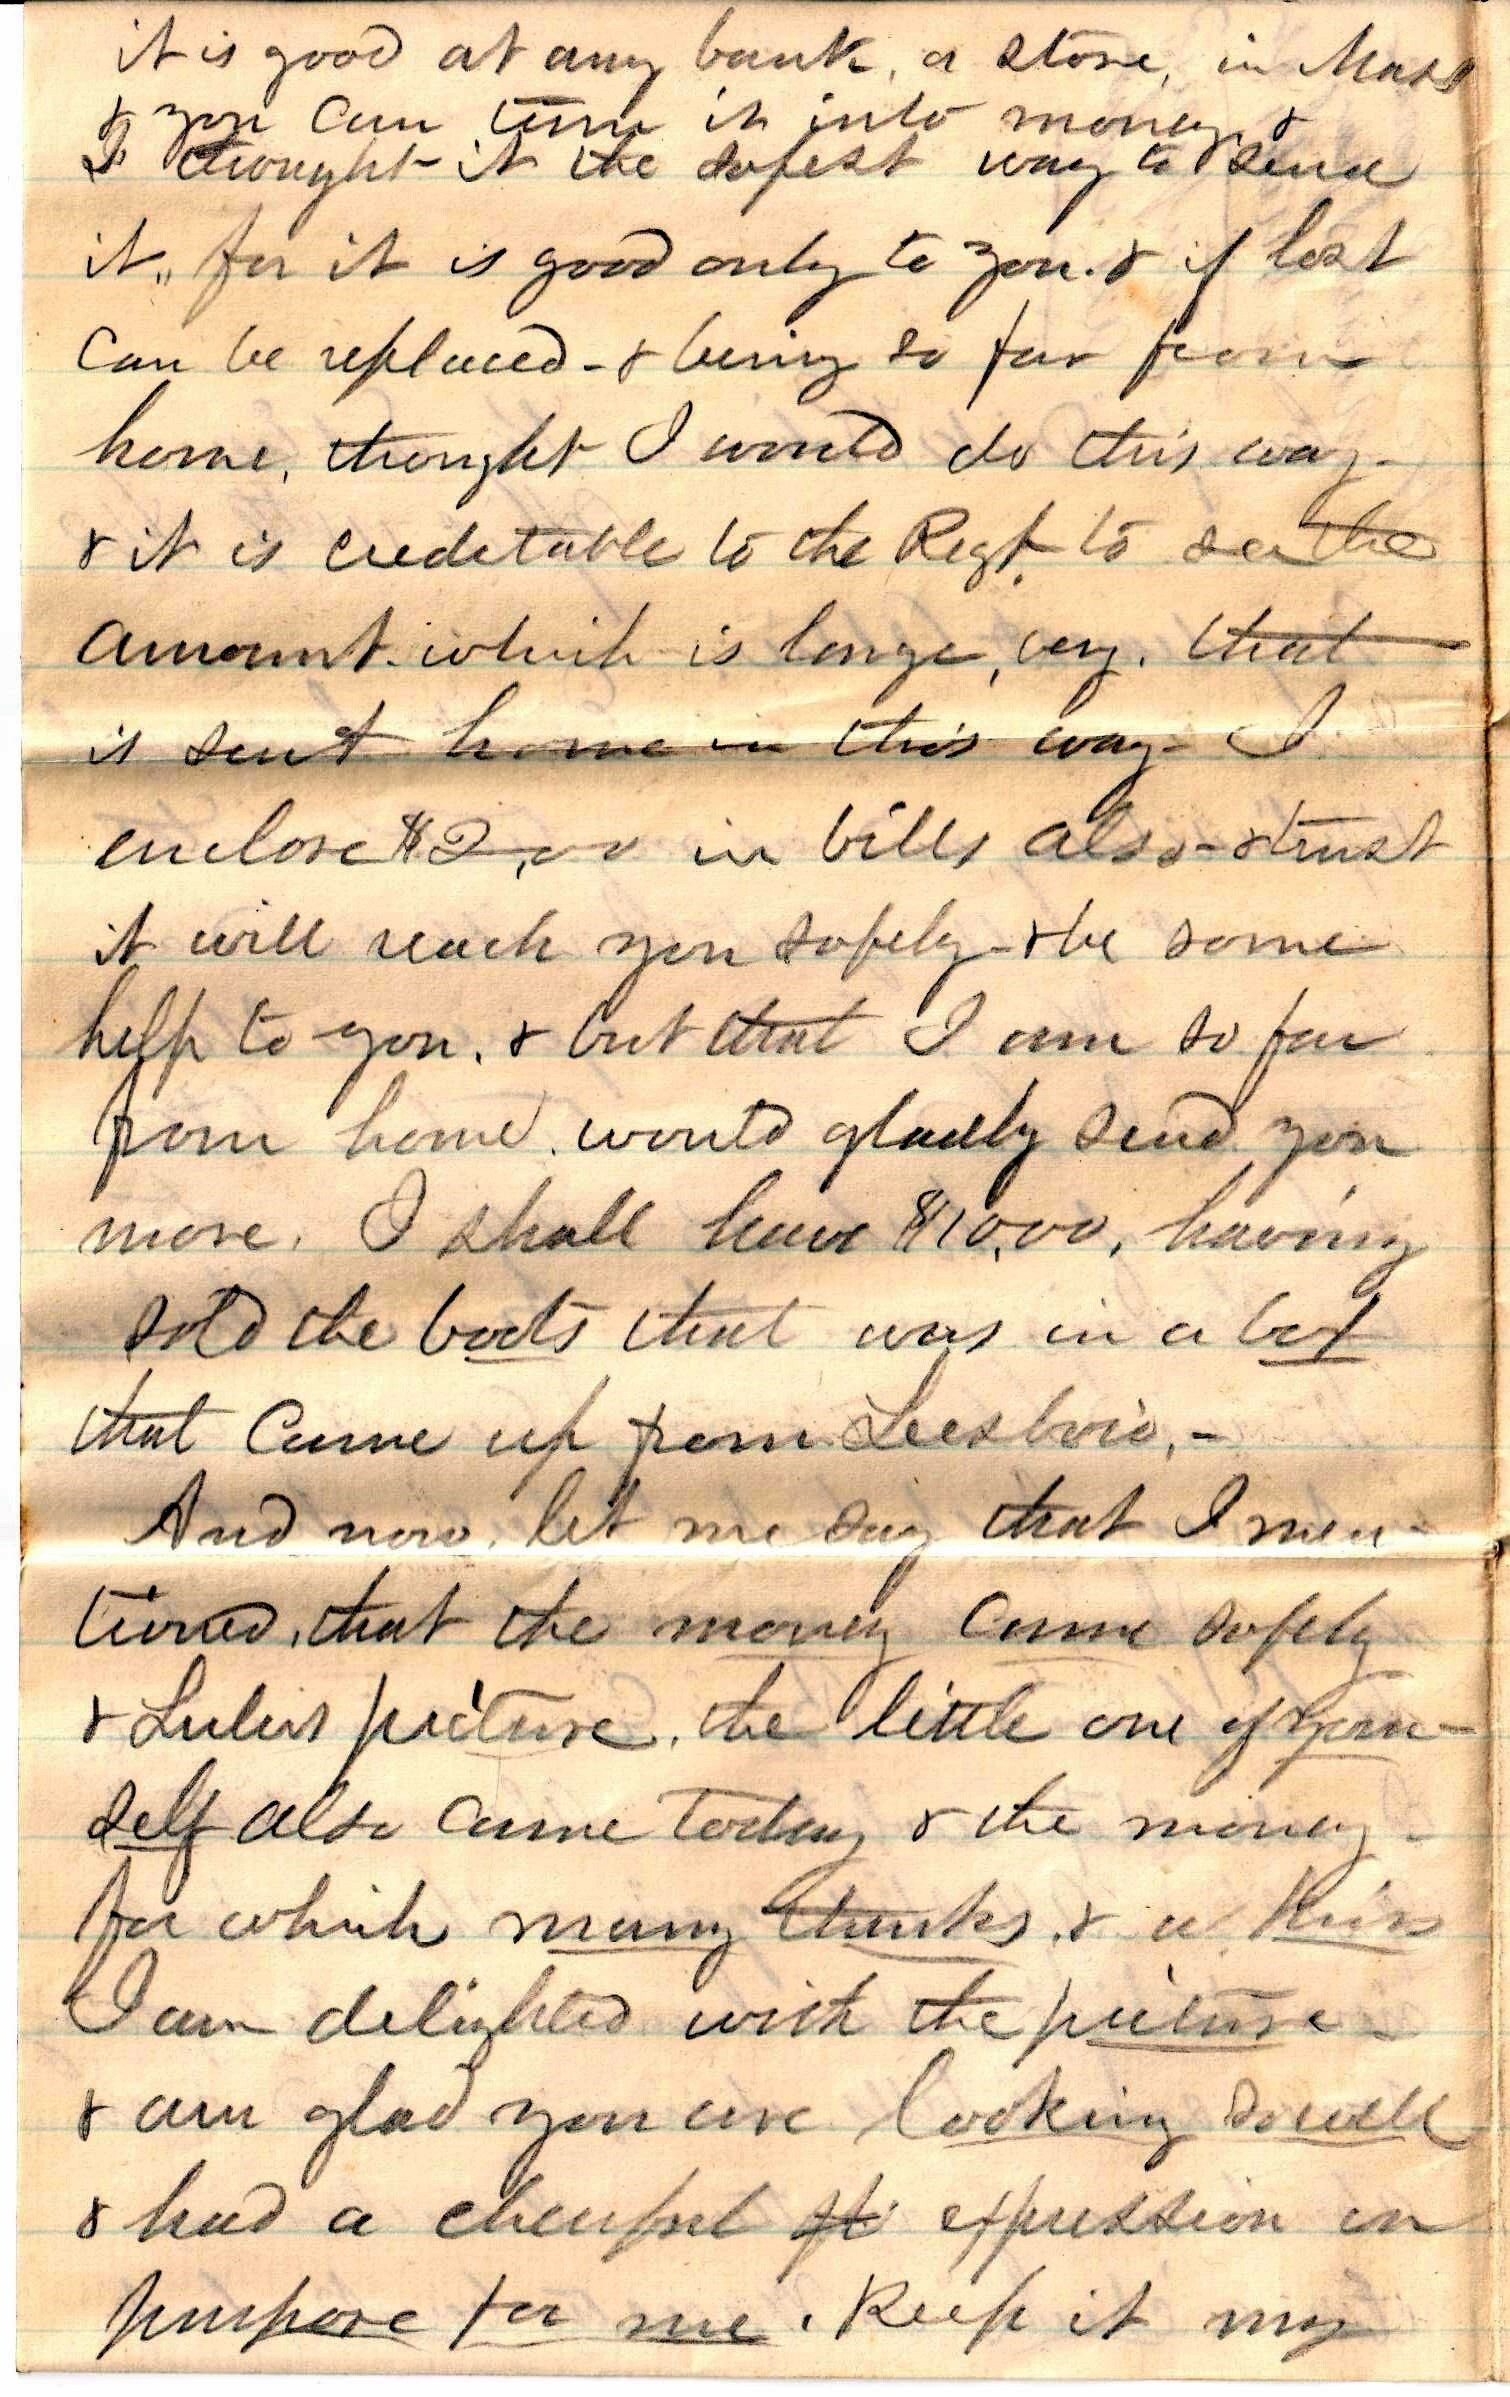 it is good at any bank, a store, in Mass
& you can turn it into money &
I thought it the safest way to send
it,, for it is good only to you. & if lost
can be replaced - & being so far from
home, thought I would do this way -
& it is creditable to the Regt. to see the
amount. which is large, very. that
is sent home in this way - I
enclose $2,00 in bills also - & trust
it will reach you safely - & be some
help to you. & but that I am so far
from home. would gladly send you
more. I shall have $10,00, having
sold the boots that was in a box
that came up from
And now, let me say that I men-
tioned, that the money came safely
& Lulies picture. the little one of your-
self also came today & the money -
for which many thanks. & a kiss
I am delighted with the picture -
& am glad you are looking so well
& had a cheerful expression on
purpose for me. Keep it my